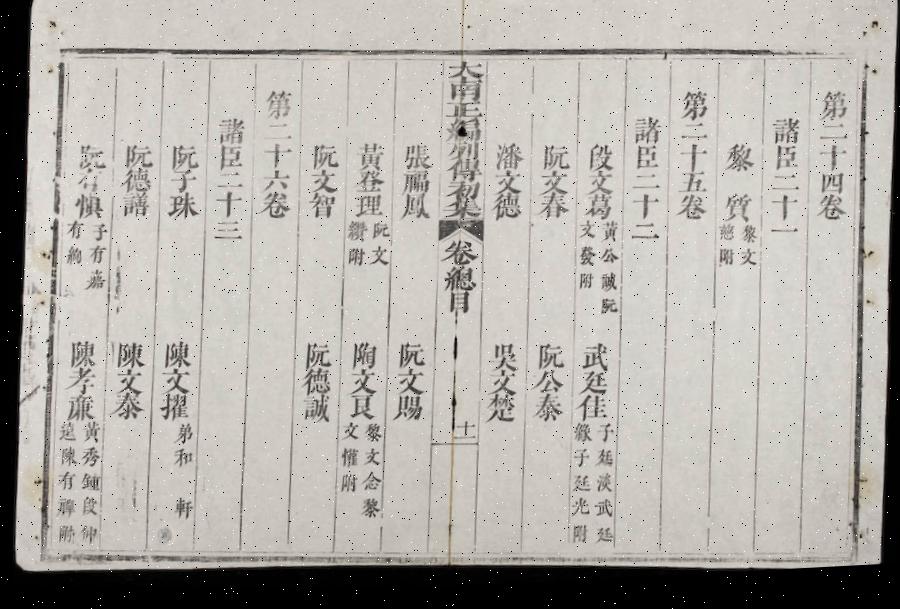 第二十四卷
諸臣二十一
黎質 黎文慈附
第二十五卷
諸臣二十二
段文葛 黃公誠阮文發附 武廷佳 子廷淡武廷緣子廷光附
阮文春 阮公泰
潘文德 吳文楚
大南正編列傳初集 卷總目 十一
張福鳳 阮文賜
黃登理 阮文纘附 陶文良 黎文念黎文懽附
阮文智 阮德誠
第二十六卷
諸臣二十三
阮子珠 陳文擢 弟和軒
阮德譱 陳文泰
阮有慎 子有嘉有絢 陳孝廉 黃秀鍾段仲遠陳有